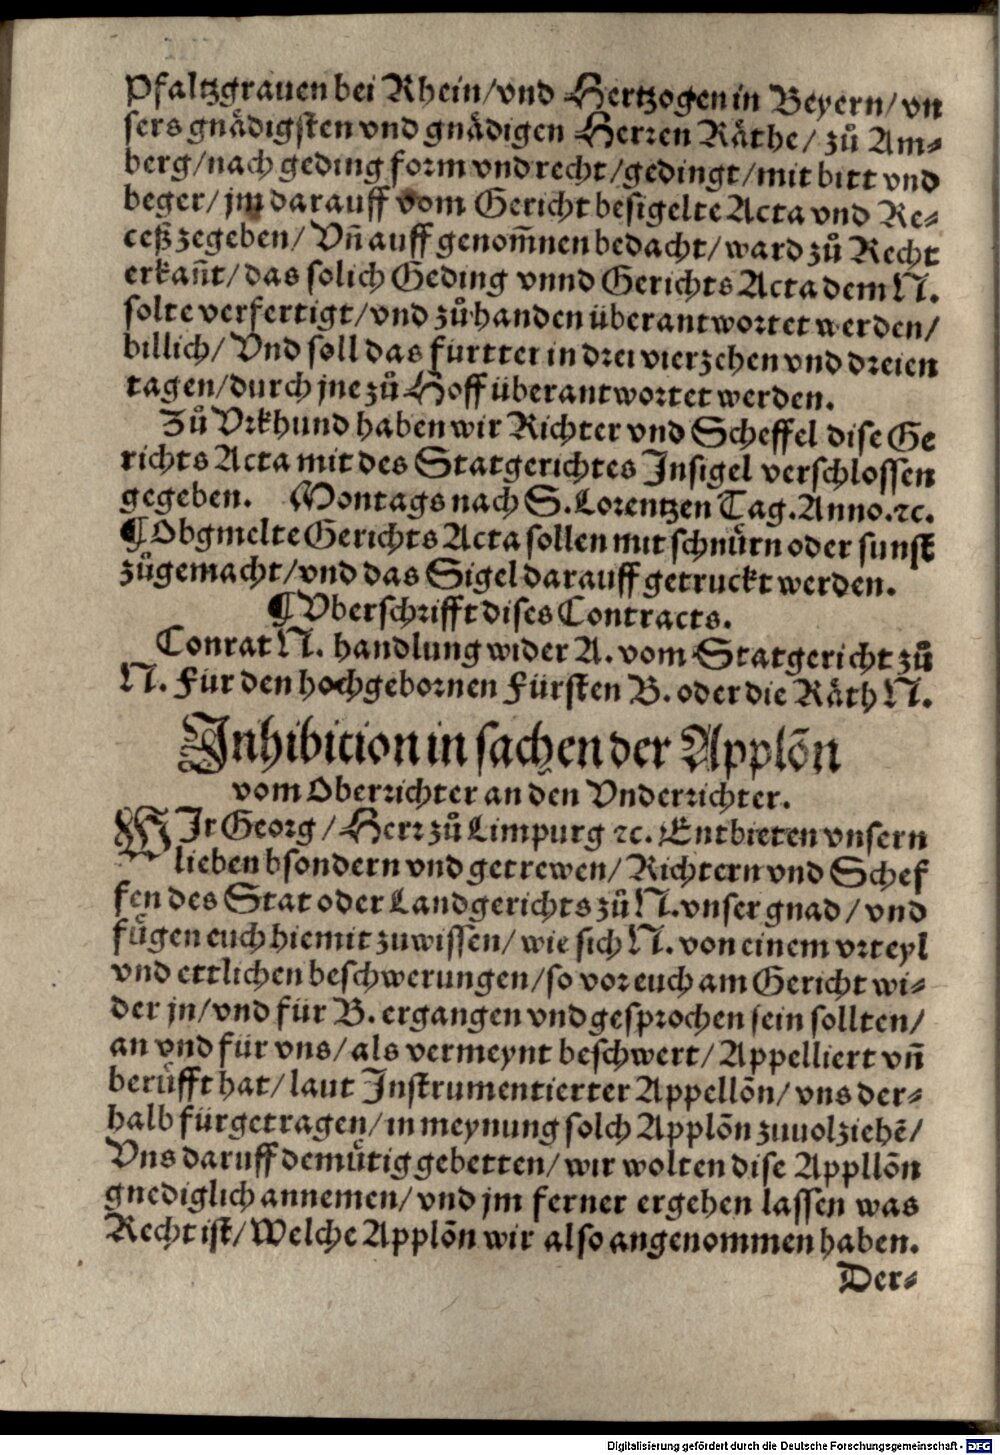 Pfaltzgrauen bei Rhein/vnd Hertzogen in Beyern/vn
sers gnädigsten vnd gnädigen Herren Räthe/ zů Am⸗
berg/nach geding form vnd recht/gedingt/mit bitt vnd
beger/ jm darauff vom Gericht besigelte Acta vnd Re⸗
ceß zegeben/ Vñ auff genom̃nen bedacht/ward zů Recht
erkañt/das solich Geding vnnd Gerichts Acta dem N.
solte verfertigt/vnd zů handen überantwortet werden/
billich/ Vnd soll das furtter in drei vierzehen vnd dreien
tagen/durch jne zů Hoff überantwortet werden.
Zů Vrkhund haben wir Richter vnd Scheffel dise Ge
richts Acta mit des Statgerichtes Insigel verschlossen
gegeben. Montags nach S. Lorentzen Tag. Anno.ꝛc.
¶Obgmelte Gerichts Acta sollen mit schnůrn oder sunst
zůgemacht/vnd das Sigel darauff getruckt werden.
¶Vberschrifft dises Contracts.
Conrat N. handlung wider A. vom Statgericht zů
N. Für den hochgebornen Fürsten B. oder die Räth N.
Inhibition in sachen der Applõn
vom Oberrichter an den Vnderrichter.
WIr Georg/Herr zů Limpurg ꝛc. Entbieten vnsern
lieben bsondern vnd getrewen/ Richtern vnd Schef
fen des Stat oder Landgerichts zů N. vnser gnad/vnd
fůgen euch hiemit zuwissen/ wie sich N. von einem vrteyl
vnd ettlichen beschwerungen/so vor euch am Gericht wi⸗
der jn/vnd für B. ergangen vnd gesprochen sein sollten/
an vnd für vns/als vermeynt beschwert/Appelliert vñ
berůfft hat/laut Instrumentierter Appellõn/ vns der⸗
halb fürgetragen/in meynung solch Applõn zuuolziehẽ/
Vns daruff demůtig gebetten/wir wolten dise Appllõn
gnediglich annemen/vnd jm ferner ergehen lassen was
Recht ist/Welche Applõn wir also angenommen haben.
Der⸗
Digitalisierung gefördert durch die Deutsche Forschungsgemeinschaft - DFG